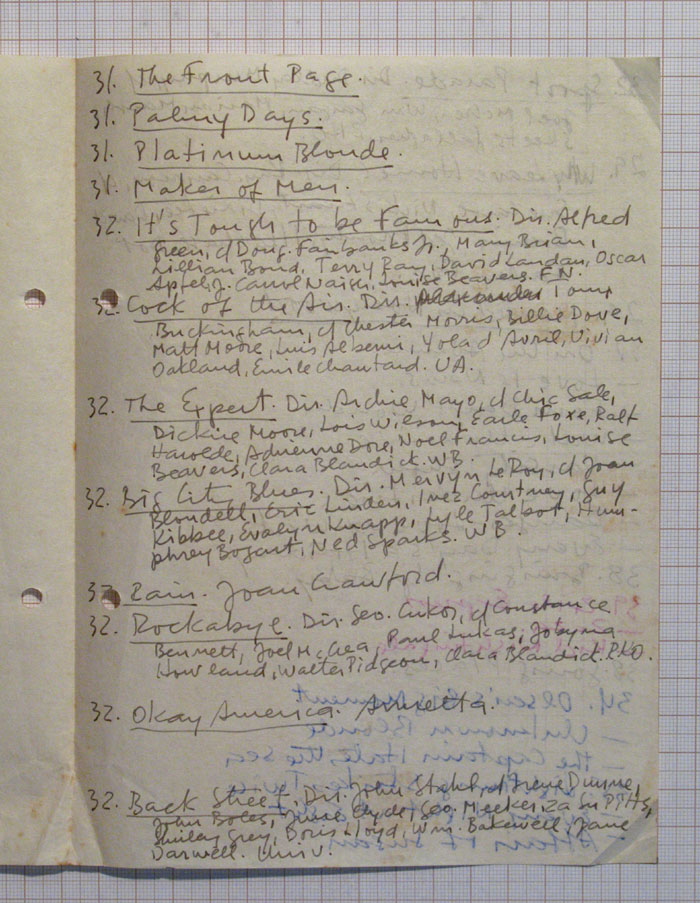 31. The Front Page.
31. Palmy Days.
31. Platinum Blonde.
31. Maker of Men.
32. It's Tough to be Famous. Dir. Alfred
Green, c/ Doug. Fairbanks Jr., Mary Brian,
Lillian Bond, Terry Ray, David Landau, Oscar
Apfel, J. Carrol Naish, Louise Beavers. F.N.
32. Cock of the Air. Dir. Tom
Buckingham, c/ Chester Morris, Billie Dove,
Matt Moore, Luis Alberni, Yola d'Avril, Vivian
Oakland, Emile Chautard. UA.
32. The Expert. Dir. Archie Mayo, c/ Chic Sale,
Dickie Moore, Lois Wilson, Earle Foxe, Ralf
Harolde, Adrienne Dore, Noel Francis, Louise
Beavers, Clara Blandick. WB.
32. Big City Blues. Dir. Mervyn LeRoy, c/ Joan
Blondell, Eric Linden, Inez Courtney, Guy
Kibbee, Evalyn Knapp, Lyle Talbot, Hum-
phrey Bogart, Ned Sparks. WB.
32. Rain. Joan Crawford.
32. Rockabye. Dir. Geo. Cukor, c/ Constance
Bennett, Joel McCrea, Paul Lukas, Jobyna
Howland, Walter Pidgeon, Clara Blandick. RKO.
32. Okay America. Annetta.
32. Back Street. Dir. John Stahl, c/ Irene Dunne,
John Boles, June Clyde, Geo. Meeker, Za Su Pitts,
Shirley Grey, Doris Lloyd, Wm. Bakewell, Jane
Darwell. Univ.